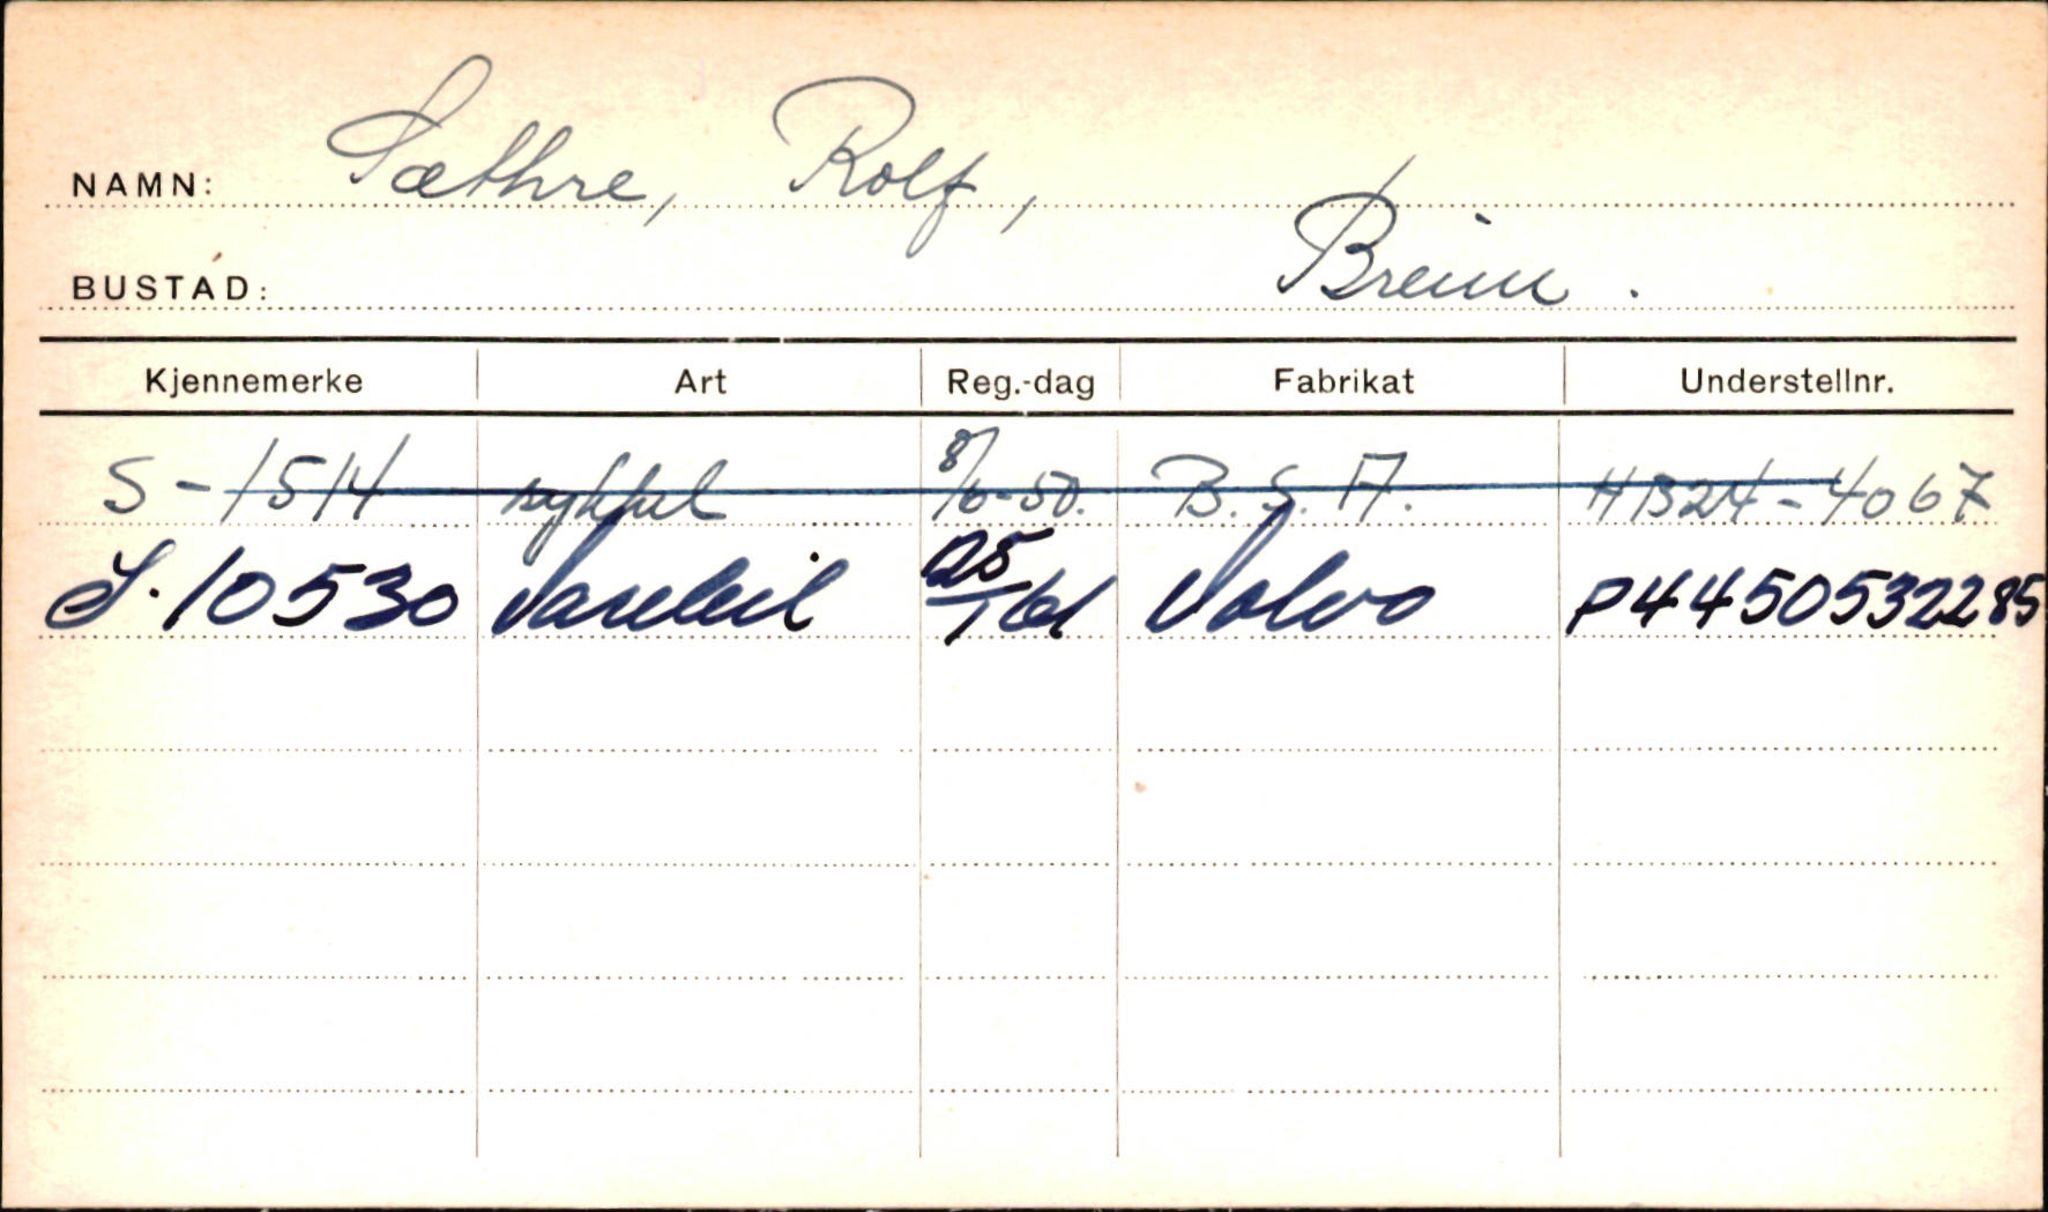 NAMN: Sæthre, Rolf,
BUSTAD: Breim.
Kjennemerke Art Reg.-dag Fabrikat Understellnr.
S-1514 sykkel 8/6-50. B.S.A. HB24-4067
S.10530 Varebil 25/1 61 Volvo P4450532285